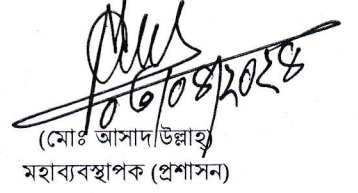 ০৩/০৪/২০২৪
(মোঃ আসাদ উল্লাহ)
মহাব্যবস্থাপক (প্রশাসন)